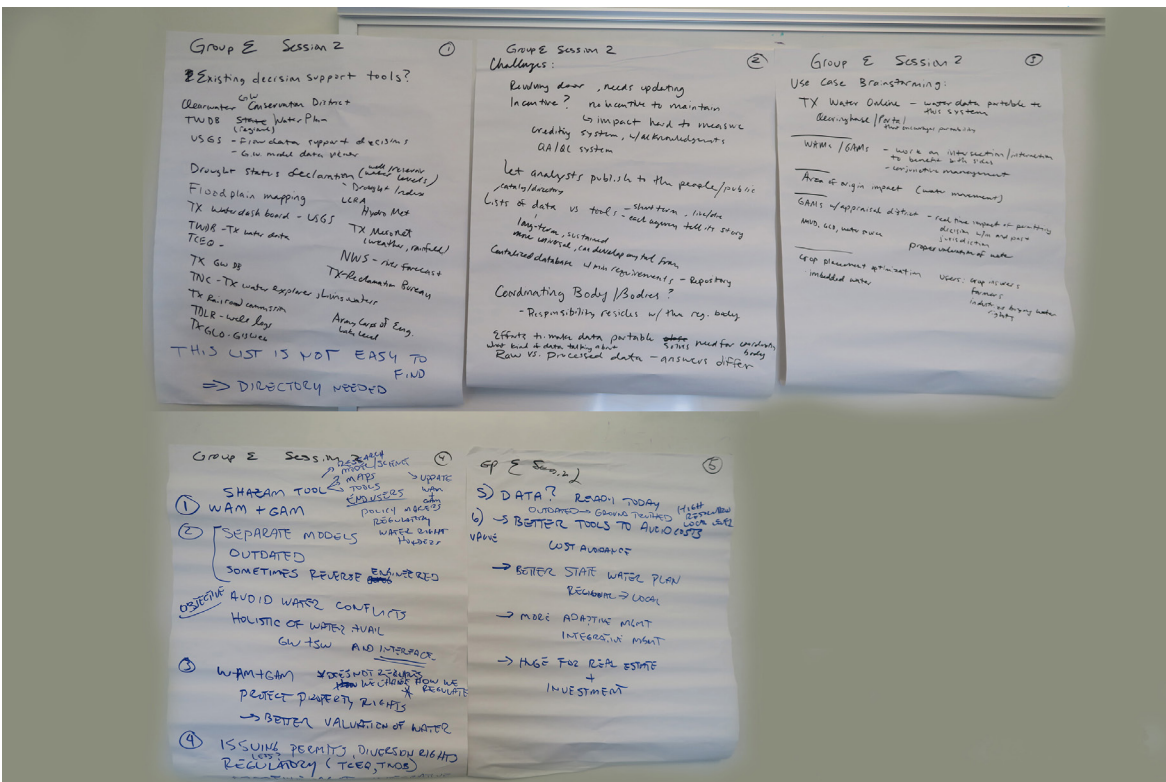 Group E Session 2 ①
Existing decision support tools?
GW
Clearwater Conservation District
TWDB State Water Plan
(regions)
USGS - Flow data support decisions
- G.W. model data viewer
Drought Status declaration (well, reservoir
(water levels)
- Drought Index
Floodplain mapping LCRA
Hydro Met
TX Water dashboard - USGS
TX Mesonet
(weather, rainfall)
TWDB - TX water data
TCEQ -
NWS - river forecast
TX GW DB
TX-Reclamation Bureau
TNC - TX water explorer
TX Railroad commission
Army Corps of Eng.
Lake level
TDLR - well logs
TX GLO - GISWeb
THIS LIST IS NOT EASY TO
FIND
⇒ DIRECTORY NEEDED
Group E Session 2 ②
Challenges:
Revolving door, needs updating
Incentive? no incentive to maintain
↳ impact hard to measure
crediting system, w/acknowledgments
QA/QC system
Let analysts publish to the people/public
catalog/directory
Lists of data vs tools - short term, live/die
- each agency tell its story
long-term, sustained
more universal, can develop tool from
Centralized database w/min requirements - Repository
Coordinating Body/Bodies?
- Responsibility resides w/ the reg. body.
Efforts to make data portable need for coordinating
body
what kind of data talking about
Raw vs. Processed data - answers differ
Group E Session 2 ③
Use Case Brainstorming:
TX Water Online - water data portable to
this system
Clearinghouse/Portal
that encourages portability
WAMs/GAMs - work on intersection/interaction
to benefit both sides
- conjunctive management
Area of origin impact (water movement)
GAMs w/appraisal district - real time impact of permitting
decision w/in and past
jurisdiction
MUD, GCD, water purve
proper valuation of water
Crop placement optimization users: crop insurers
imbedded water farmers
industries buying water
rights
Group E Session 2 ④
RESEARCH
MODEL/SCIENCE
MAPS
SHAZAM TOOL TOOLS
→ UPDATE
WAM
+
GAM
END USERS
① WAM + GAM POLICY MAKERS
REGULATORY
WATER RIGHT
HOLDERS
② SEPARATE MODELS
OUTDATED
SOMETIMES REVERSE ENGINEERED
OBJECTIVE AVOID WATER CONFLICTS
HOLISTIC OF WATER AVAIL
GW + SW AND INTERFACE
③ WAM+GAM * DOES NOT REQUIRE
HOW WE CHANGE HOW WE
* REGULATE
PROTECT PROPERTY RIGHTS
→ BETTER VALUATION OF WATER
④ ISSUING PERMITS, DIVERSION RIGHTS
LESS?
REGULATORY (TCEQ, TWDB)
GP E Sess. 2 ⑤
5) DATA? READILY TODAY
OUTDATED → GROUND TRUTHED HIGH
RESOLUTION
LOCAL LEVEL
6) → BETTER TOOLS TO AVOID COSTS
VALUE
COST AVOIDANCE
→ BETTER STATE WATER PLAN
REGIONAL → LOCAL
→ MORE ADAPTIVE MGMT
INTEGRATIVE MGMT
→ HUGE FOR REAL ESTATE
+
INVESTMENT